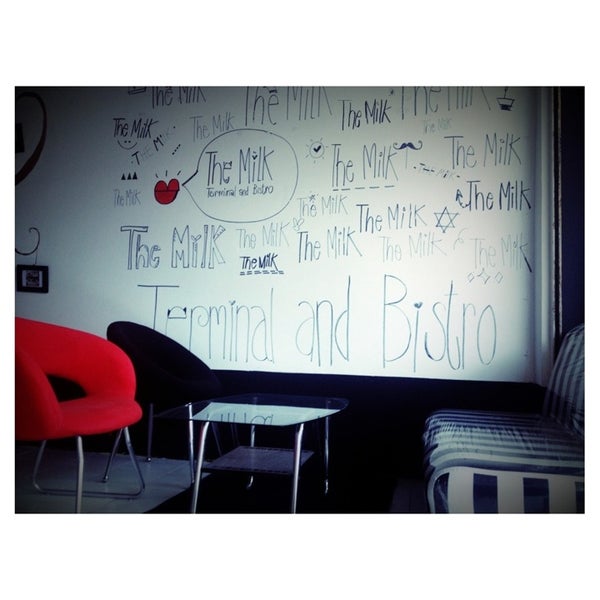 The Milk
The Milk
The Milk
The Milk
The Milk
The Milk
The Milk
The Milk
The Milk
Terminal and Bistro
The Milk
The Milk
The Milk
The Milk
The Milk
The Milk
The Milk
The Milk
The Milk
The Milk
The Milk
The Milk
The Milk
Terminal and Bistro